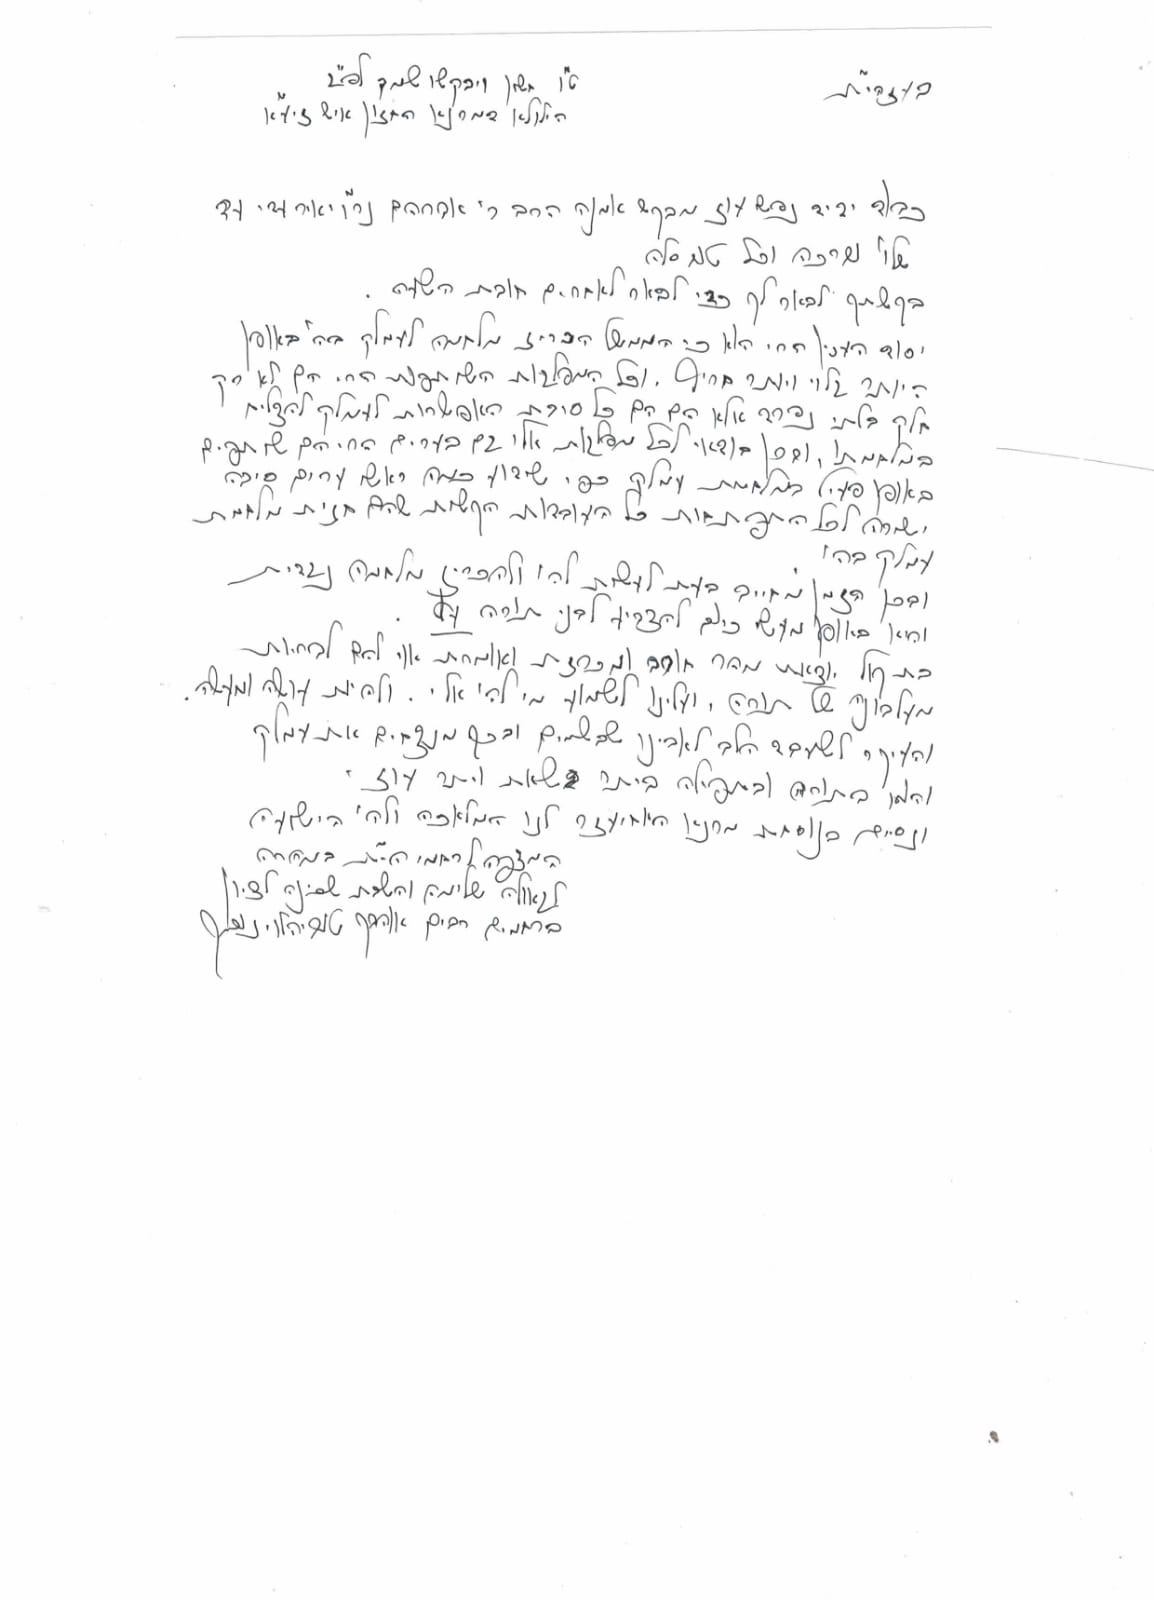 בעזהי"ת
ט"ו חשון ויבקשו שמך לפ"ג
הילולא דמרנא החזון איש זיע"א
כבוד ידיד נפש עוז מבקש אמונה הרב ר' אברהם נר"ו יאיר עדי עד
שלו' וברכה וכל טוב סלה
בקשתך לבאר לך כדי לבאר לאחרים חובת השעה .
יסוד הענין החי הלא כי הממשל הכריז מלחמה לעמלק בה' באופן
היותר גלוי ויותר חריף . וכל המפלגות השותפות החי הם לא רק
חלק בלתי נפרד אלא הם הם כל סיבת האפשרות לעמלק להצליח
במלחמתו , ובכן בודאי לכל מפלגות אלו גם בערים החי הם שותפים
באופן פעיל במלחמת עמלק כפי שידוע כמה ראשי ערים סיבה
ישרה לכל התפתחות כל העובדות הקשות שהם חזית מלחמת
עמלק בה'
ובכן הזמן מחייב בעת לעשות לה' ולהכריז מלחמה נגדית
והוא באופן מעשי כולם להצביע לבני תורה
בת קול יוצאת מהר חורב ומכרזת ואומרת אוי להם לבריות
מעלבונה של תורה , ועלינו לשמוע מי לה' אלי . ולהיות עושה ומעשה .
והעיקר לשעבד הלב לאבינו שבשמים ובכך מנצחים את עמלק
והמן בתורה ובתפילה ביתר שאת ויתר עוז
ונסיים בנוסחת מרנא לנו המלאכה ולה' הישועה
המצפה לרחמי הי"ת במהרה
לגאולה שלימה והשבת שכינה לציון
ברחמים רבים אוהבך